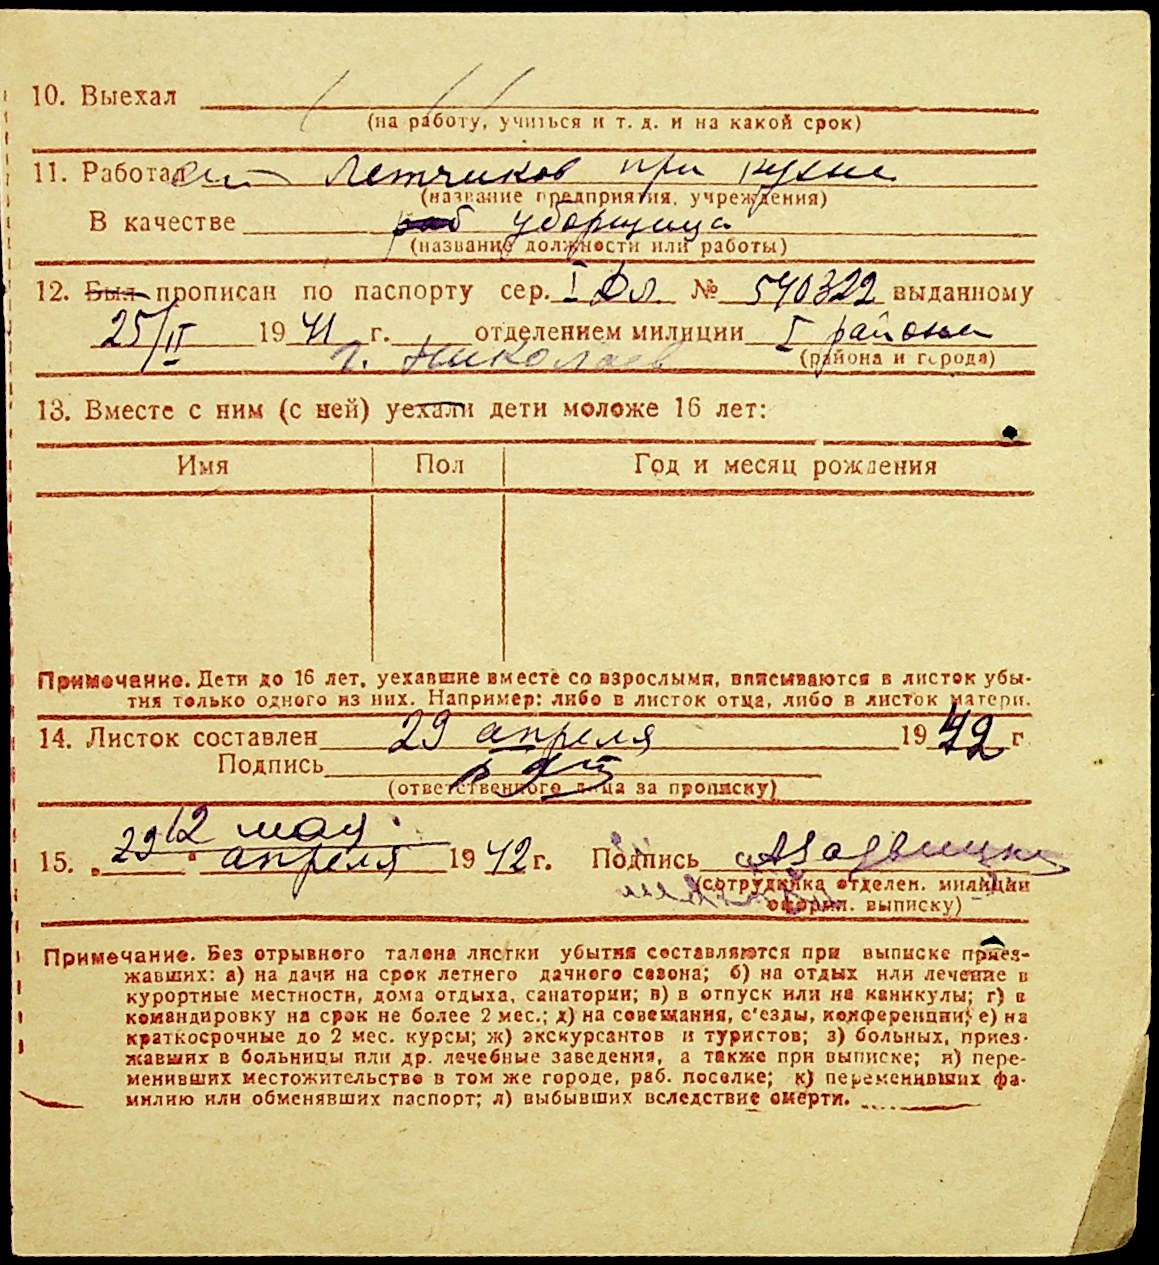 10. Выехал
(на работу, учиться и т. д. и на какой срок)
11. Работал Летчиков при кухне
(название предприятия, учреждения)
В качестве раб уборщица
(название должности или работы)
12. Был прописан по паспорту сер. I № 540322 выданному
25/II 1941 г. отделением милиции I района
г. Николаев (района и города)
13. Вместе с ним (с ней) уехали дети моложе 16 лет:
Имя Пол Год и месяц рождения
Примечание. Дети до 16 лет, уехавшие вместе со взрослыми, вписываются в листок убы-
тия только одного из них. Например: либо в листок отца, либо в листок матери.
14. Листок составлен 29 апреля 1942 г
Подпись
(ответственного лица за прописку)
12 мая
15. „29" апреля 1942 г. Подпись
(сотрудника отделен. милиции
оформ. выписку)
Примечание. Без отрывного талона листки убытия составляются при выписке приез-
жавших: а) на дачи на срок летнего дачного сезона; б) на отдых или лечение в
курортные местности, дома отдыха, санатории; в) в отпуск или на каникулы; г) в
командировку на срок не более 2 мес.; д) на совещания, с'езды, конференции; е) на
краткосрочные до 2 мес. курсы; ж) экскурсантов и туристов; з) больных, приез-
жавших в больницы или др. лечебные заведения, а также при выписке; и) пере-
менивших местожительство в том же городе, раб. поселке; к) переменивших фа-
милию или обменявших паспорт; л) выбывших вследствие смерти.